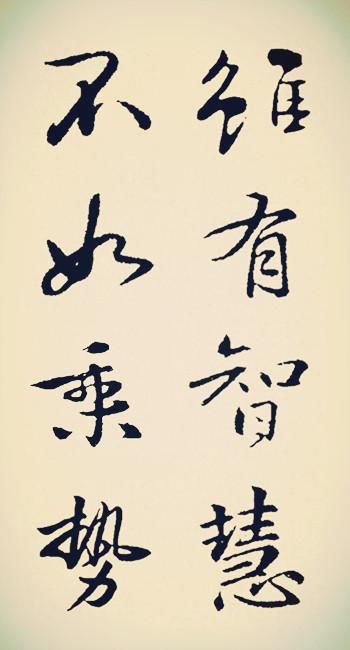 雖有智慧
不如乘势